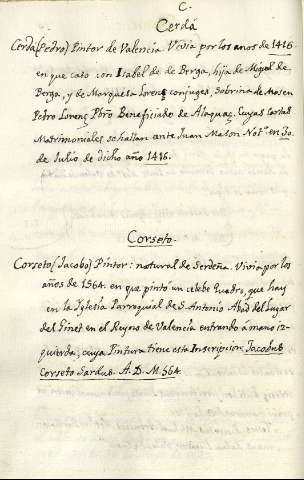 C.
Cerdá
Cerdá (Pedro) Pintor de Valencia. Vivia por los anos de 1416.
en que caso con Isabel de de Berga, hija de Miguel de
Berga, y de Margueta Lorenz conjuges, sobrina de Mosen
Pedro Lorenz Pbro Beneficiado de Alaquaz. Cuyas Cartas
Matrimoniales se hallan ante Juan Mason Notº en 30.
de Julio de dicho año 1416.
Corseto.
Corseto (Jacobo) Pintor: natural de Serdeña. Vivia por los
años de 1564. en que pintó un celebe Quadro, que hay
en la Iglesia Parroquial de S. Antonio Abad del Lugar
del Ginet en el Reyno de Valencia entrando á mano iz-
quierda, cuya Pintura tiene esta Inscripcion Jacobus
Corseto Sardus. A. D. M. 564.